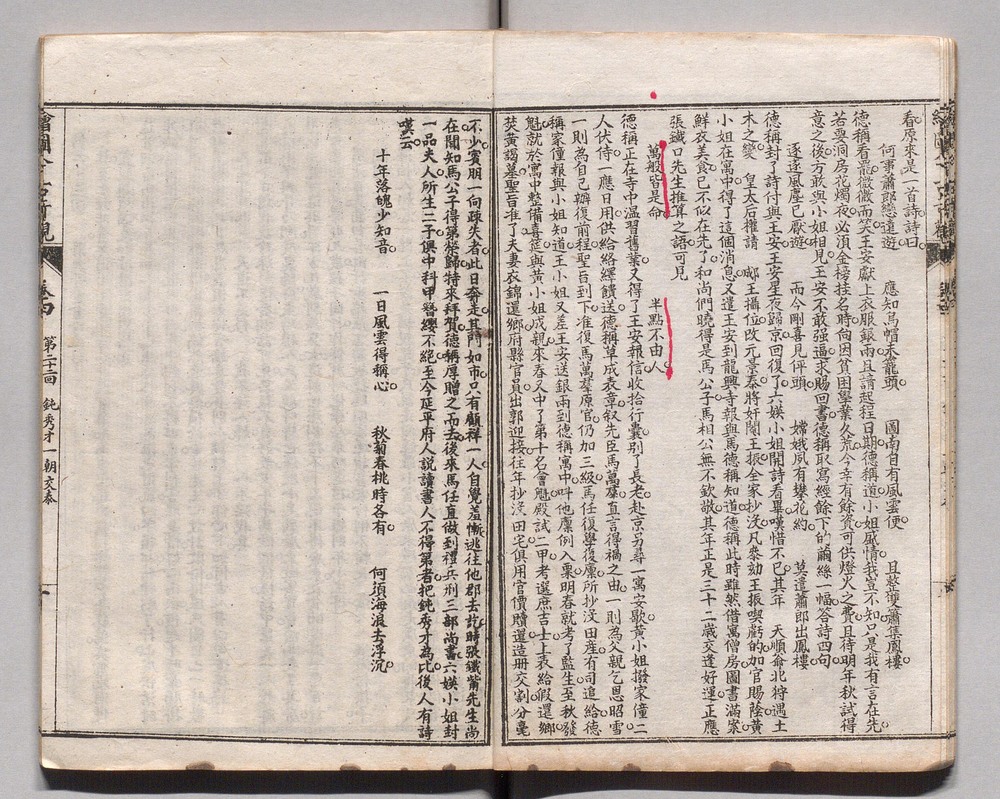 春原來是一首詩詩曰
何事蕭郎戀遠遊　應知烏帽未籠頭　圖南自有風雲便　且整雙簫集鳳樓
德稱看罷微微而笑王安獻上衣服銀兩且請起程日期德稱道小姐盛情我豈不知只是我有言在先
若要洞房花燭夜必須金榜挂名時向因貧困學業久荒今幸有餘資可供燈火之費且待明年秋試得
意之後方敢與小姐相見王安不敢强逼求賜回書德稱取寫經餘下的繭絲一幅答詩四句
逐逐風塵已厭遊　而今剛喜見伻頭　嫦娥夙有攀花約　莫遣蕭郎出鳳樓
德稱封了詩付與王安王安星夜歸京回復了六媖小姐開詩看畢嘆惜不已其年　天順爺北狩遇土
木之變　皇太后權請　郕王攝位改元景泰將奸閹王振全家抄沒凡參劾王振喫虧的加官賜蔭黃
小姐在寓中得了這個消息又遣王安到龍興寺報與馬德稱知道德稱此時雖然借寓僧房圖書滿案
鮮衣美食已不似在先了和尚們曉得是馬公子馬相公無不欽敬其年正是三十二歲交逢好運正應
張鐵口先生推算之語可見
萬般皆是命　半點不由人
德稱正在寺中溫習舊業又得了王安報信收拾行囊别了長老赴京另尋一寓安歇黃小姐撥家僮二
人伏侍一應日用供給絡繹饋送德稱草成表章叙先臣馬萬羣直言得禍之由一則為父親乞恩昭雪
一則為自己辦復前程聖旨到下准復馬萬羣原官仍加三級馬任復學復廪所抄沒田産有司追給德
稱家僮報與小姐知道王小姐又差王安送銀兩到德稱寓中叫他廪例入粟明春就考了監生至秋發
魁就於寓中整備喜筵與黃小姐成親來春又中了第十名會魁殿試二甲考選庶吉士上表給假還鄉
焚黃謁墓聖旨准了夫妻衣錦還鄉府縣官員出郭迎接往年抄沒田宅俱用官價贖還造册交割分毫
不少賓朋一向疎失者此日奔走其門如市只有顧祥一人自覺羞慚逃往他郡去訖時張鐵觜先生尚
在聞知馬公子得第榮歸特來拜賀德稱厚贈之而去後來馬任直做到禮兵刑三部尚書六媖小姐封
一品夫人所生二子俱中科甲簪纓不絕至今延平府人説讀書人不得第者把鈍秀才為比後人有詩
嘆云
十年落魄少知音　一日風雲得稱心　秋菊春桃時各有　何須海浪去浮沉
繪圖今古奇觀　卷四　第二十二回　鈍秀才一朝交泰